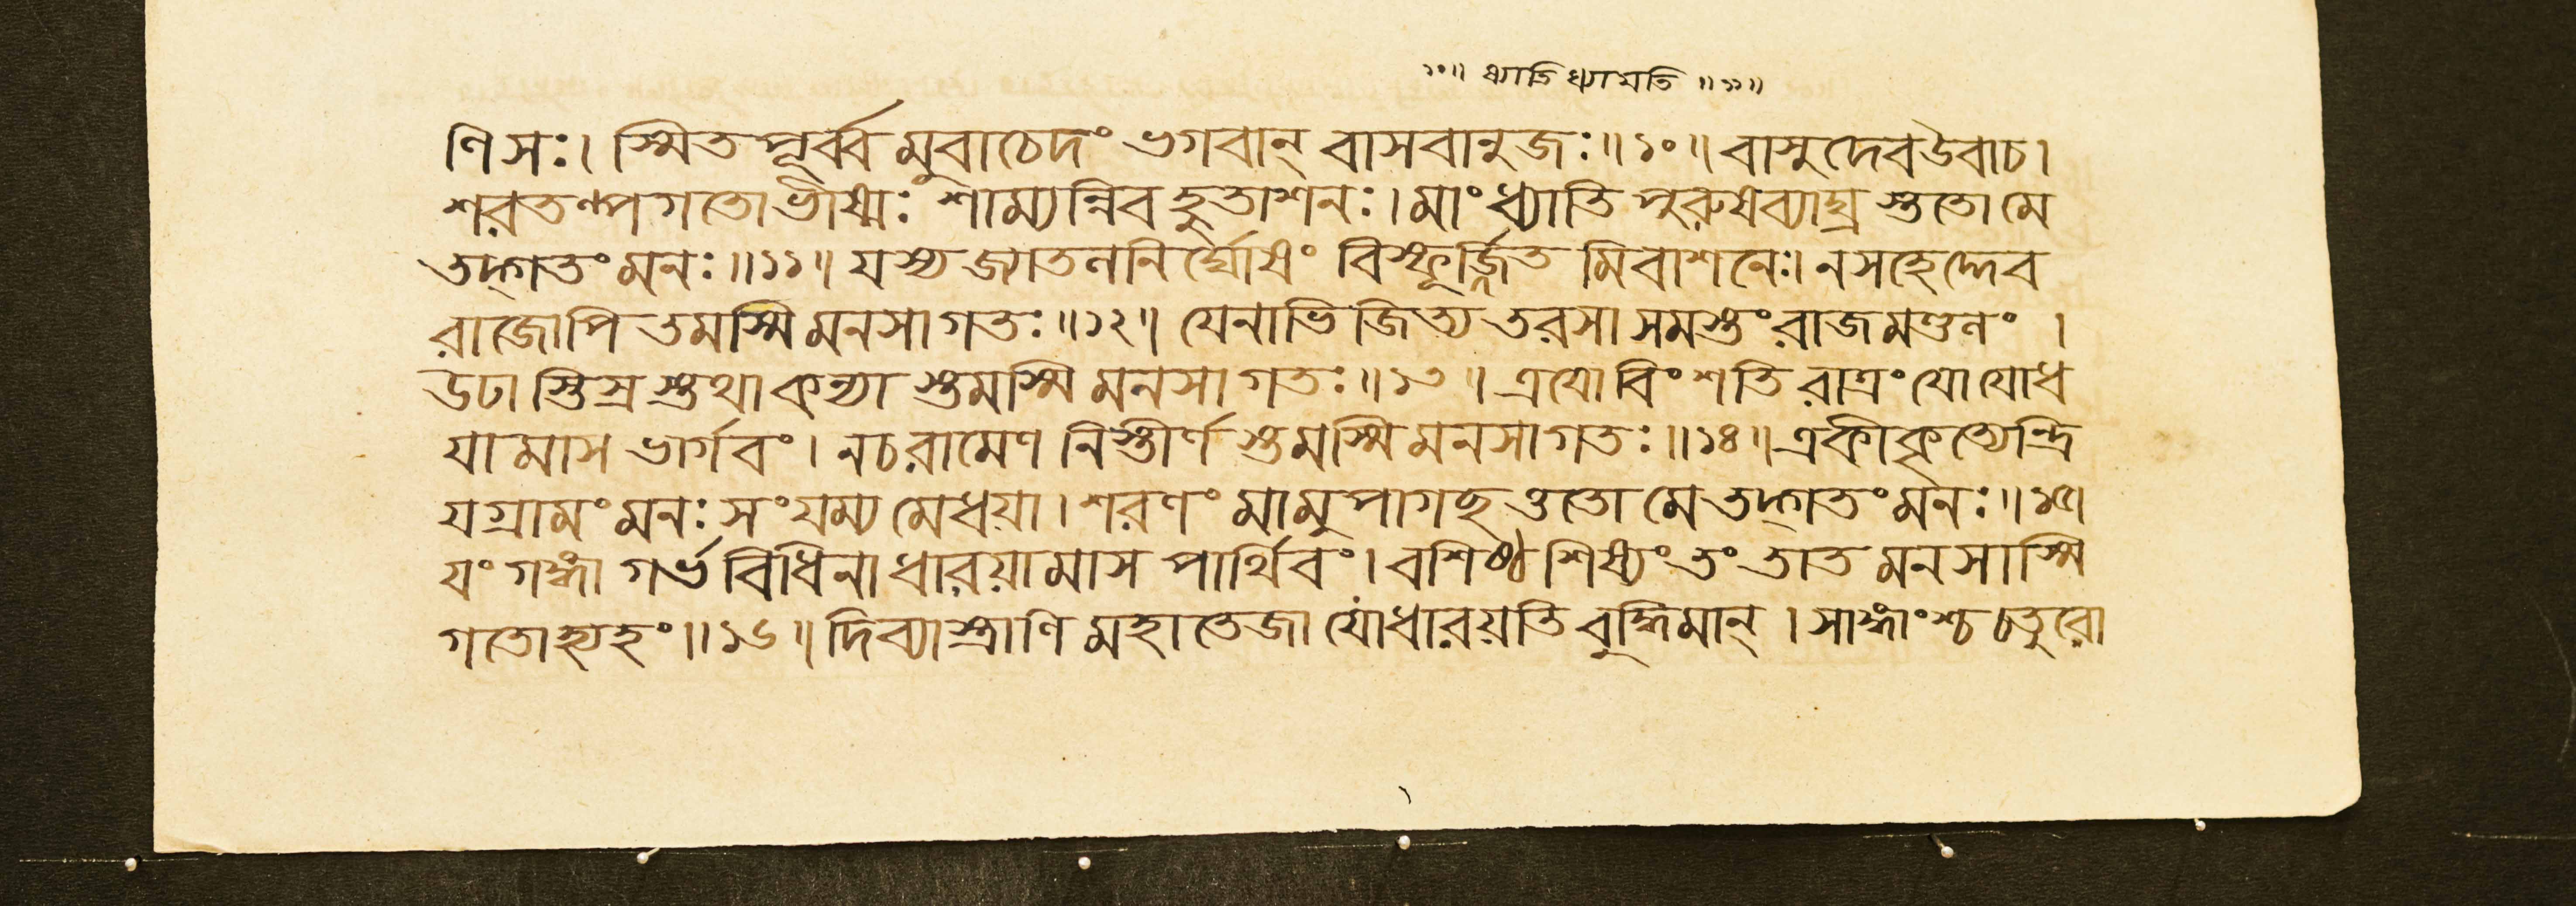 ১০॥ ধ্যাতি ধ্যায়তি ॥১১॥
ণিসঃ। স্মিতপূর্ব্বমুবাচেদং ভগবান্ বাসবানুজঃ॥১০॥ বাসুদেবউবাচ।
শরতল্পগতোভীষ্মঃ শাম্যন্নিবহুতাশনঃ। মাংধ্যাতি পুরুষব্যাঘ্র স্ততোমে
তদ্গতংমনঃ॥১১॥ যস্য জ্যাতলনির্ঘোষং বিস্ফূর্জ্জিত মিবাশনেঃ। নসহেদ্দেব
রাজোপি তমস্মি মনসাগতঃ॥১২॥ যেনাভিজিত্য তরসা সমস্তংরাজমণ্ডলং ।
উঢা স্তিস্র স্তথাকন্যা স্তমস্মি মনসাগতঃ॥১৩॥ ত্রয়োবিংশতিরাত্রং যোযোধ
যামাস ভার্গবং। নচরামেণ নিস্তীর্ণ স্তমস্মিমনসাগতঃ॥১৪॥ একীকৃত্যেন্দ্রি
যগ্রামংমনঃ সংযম্য মেধয়া। শরণং মামুপাগচ্ছ ত্ততোমেতদ্গতংমনঃ॥১৫॥
যং গঙ্গা গর্ভবিধিনা ধারয়ামাস পার্থিবং। বশিষ্ঠশিষ্যং তং তাত মনসাস্মি
গতোহ্যহং॥১৬॥ দিব্যাস্ত্রাণি মহাতেজা যোধারয়তি বুদ্ধিমান্ । সাঙ্গাংশ্চ চতুরো